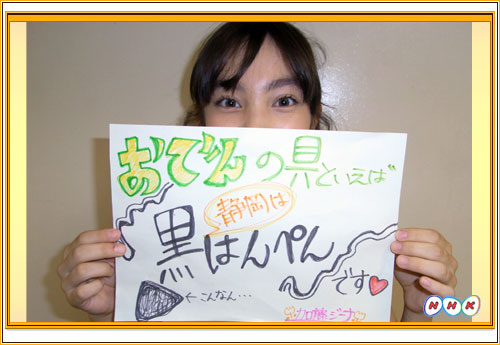 おでんの具といえば
静岡は
黒はんぺん
です
←こんなん…
NHK